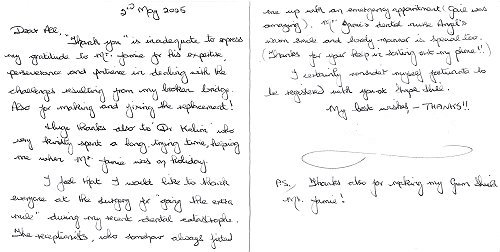 2nd May 2025
Dear All,
"Thank you" is inadequate to express
my gratitude to Mr. Jamie for his expertise,
perseverance and patience in dealing with the
challenges resulting from my broken bridge.
Also for making and fixing the replacement!
Huge thanks also to "Dr Kalim" who
very kindly spent a long, trying time, helping
me when Mr. Jamie was on holiday.
I feel that I would like to thank
everyone at the surgery for "going the extra
mile" during my recent dental catastrophe.
The receptionists, who somehow always fitted
me up with an emergency appointment (Gail was
amazing). Mr Jamie's dental nurse Angel's
warm smile and body manner is special too.
(Thanks for your help in sorting out my phone!!)
I certainly consider myself fortunate to
be registered with you at Hope Hill.
My best wishes, – THANKS!!
P.S. Thanks also for making my Gum Shield
Mr. Jamie!